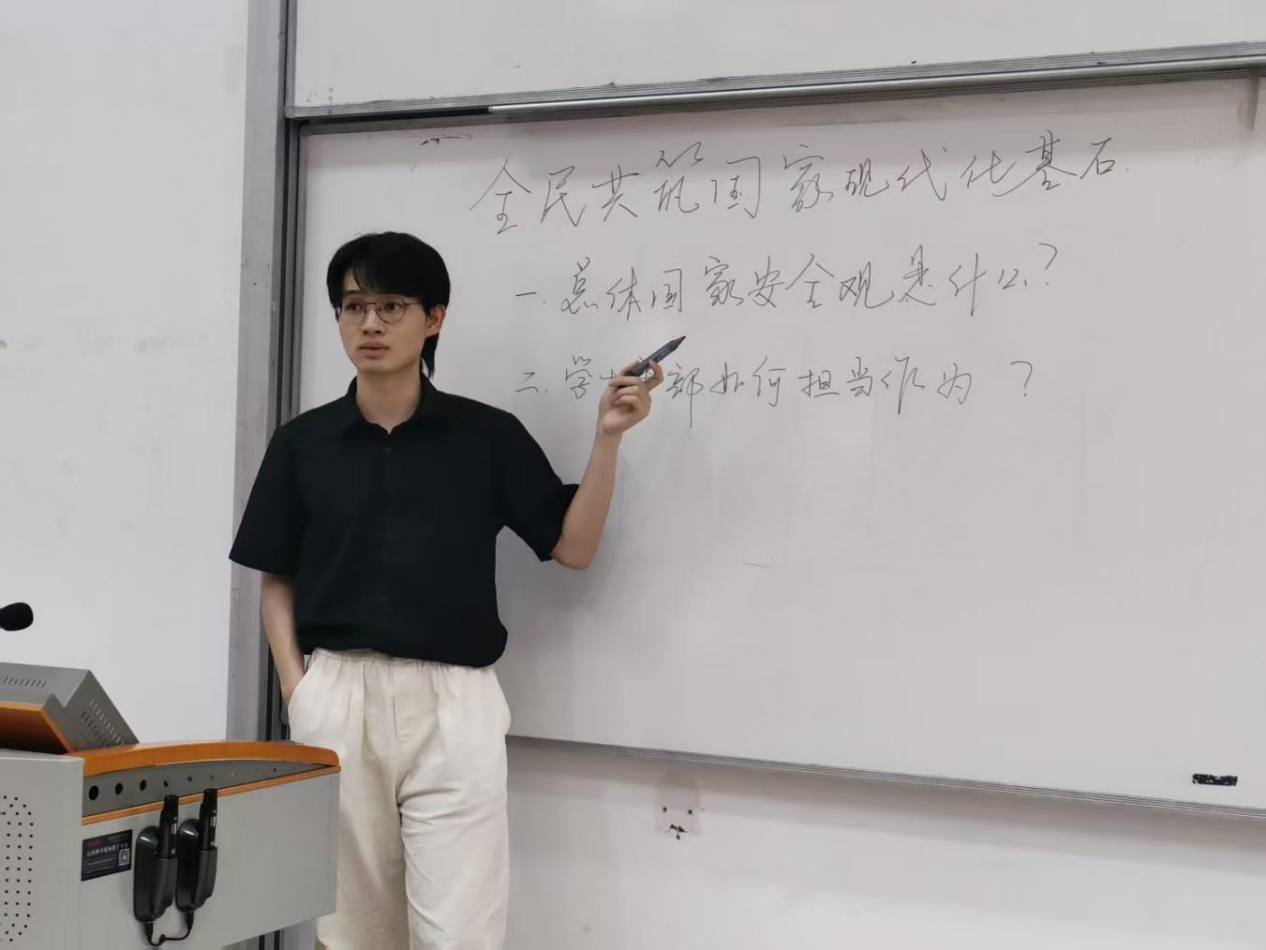 全民共筑国家现代化基石.
一.总体国家安全观是什么?
二.学 部如何担当作为?